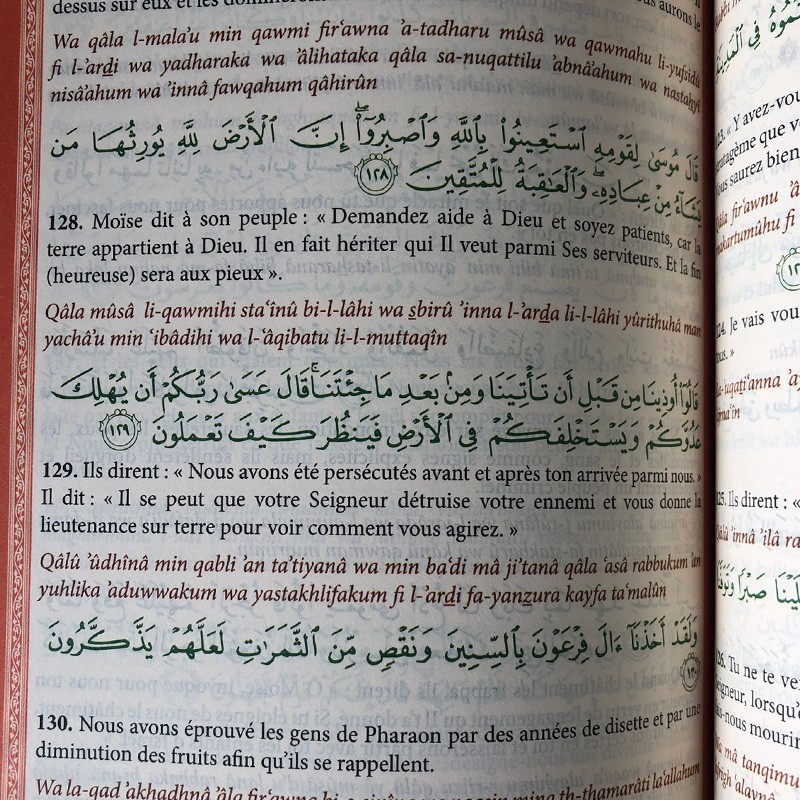 dessus sur eux et les dominerons
ous aurons le
Wa qâla l-mala'u min qawmi fir‘awna 'a-tadharu mûsâ wa qawmahu li-yufsidû
fi l-'arḍi wa yadharaka wa 'âlihataka qâla sa-nuqattilu 'abnâ'ahum wa nastaḥyî
nisâ'ahum wa 'innâ fawqahum qâhirûn
قَالَ مُوسَىٰ لِقَوْمِهِ ٱسْتَعِينُوا۟ بِٱللَّهِ وَٱصْبِرُوٓا۟ ۖ إِنَّ ٱلْأَرْضَ لِلَّهِ يُورِثُهَا مَن
يَشَآءُ مِنْ عِبَادِهِۦ ۖ وَٱلْعَـٰقِبَةُ لِلْمُتَّقِينَ ١٢٨
128. Moïse dit à son peuple : « Demandez aide à Dieu et soyez patients, car la
terre appartient à Dieu. Il en fait hériter qui Il veut parmi Ses serviteurs. Et la fin
(heureuse) sera aux pieux ».
Qâla mûsâ li-qawmihi sta‘înû bi-l-lâhi wa sbirû 'inna l-'arda li-l-lâhi yûrithuhâ man
yachâ'u min ‘ibâdihi wa l-‘âqibatu li-l-muttaqîn
قَالُوٓا۟ أُوذِينَا مِن قَبْلِ أَن تَأْتِيَنَا وَمِنۢ بَعْدِ مَا جِئْتَنَا ۚ قَالَ عَسَىٰ رَبُّكُمْ أَن يُهْلِكَ
عَدُوَّكُمْ وَيَسْتَخْلِفَكُمْ فِى ٱلْأَرْضِ فَيَنظُرَ كَيْفَ تَعْمَلُونَ ١٢٩
129. Ils dirent : « Nous avons été persécutés avant et après ton arrivée parmi nous. »
Il dit : « Il se peut que votre Seigneur détruise votre ennemi et vous donne la
lieutenance sur terre pour voir comment vous agirez. »
Qâlû 'ûdhînâ min qabli 'an ta'tiyanâ wa min ba‘di mâ ji'tanâ qâla ‘asâ rabbukum 'an
yuhlika ‘aduwwakum wa yastakhlifakum fi l-'ardi fa-yanzura kayfa ta‘malûn
وَلَقَدْ أَخَذْنَآ ءَالَ فِرْعَوْنَ بِٱلسِّنِينَ وَنَقْصٍ مِّنَ ٱلثَّمَرَٰتِ لَعَلَّهُمْ يَذَّكَّرُونَ
١٣٠
130. Nous avons éprouvé les gens de Pharaon par des années de disette et par une
diminution des fruits afin qu'ils se rappellent.
Wa la-qad 'akhadhnâ 'âla fir‘awna bi-s-sinîna wa naqsin mina th-thamarâti la‘allahum
« Y avez-vou
ratagème que v
ous saurez bien
Qâla fir‘awnu 'â
makartumûhu fi
124. Je vais vou
ous. »
125. Ils dirent : «
Qâlû 'innâ 'ilâ ra
عَلَيْنَا صَبْرًا وَتَوَفَّنَا
126. Tu ne te ve
eigneur, lorsqu'
ais-nous mourir
Wa mâ tanqimu